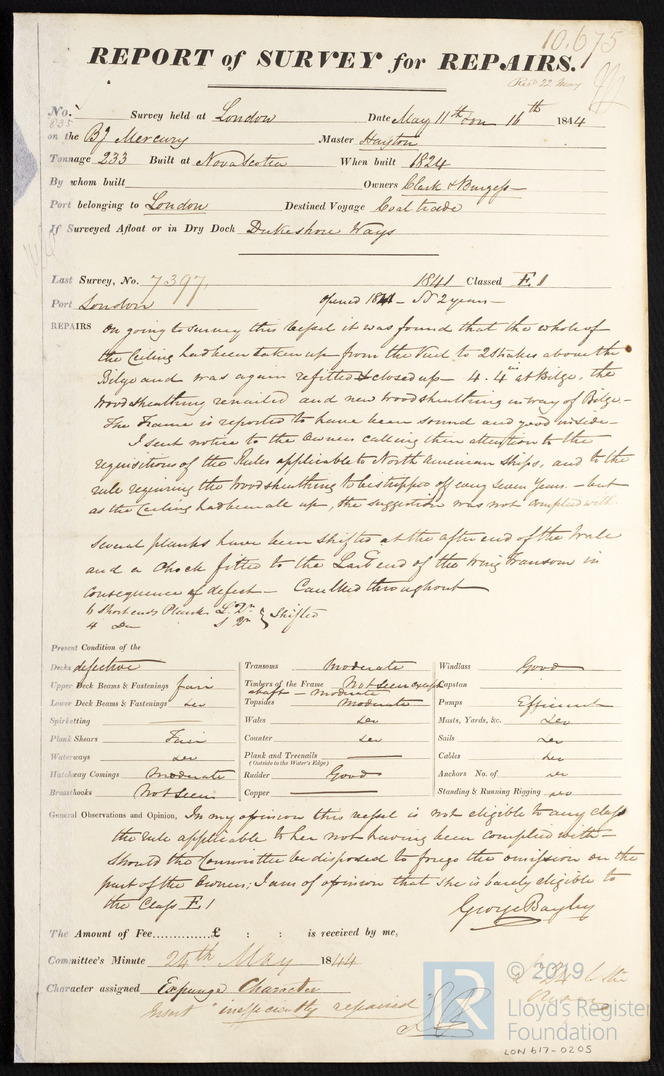 10.675
REPORT of SURVEY for REPAIRS.
Rec'd 22 May
No. 835 Survey held at London Date May 11th on 16th 1844
on the Bg Mercury Master Hayton
Tonnage 233 Built at Nova Scotia When built 1824
By whom built Owners Clark & Burgess
Port belonging to London Destined Voyage Coal trade
If Surveyed Afloat or in Dry Dock Dukeshore Ways
Last Survey, No. 7397. 1841 Classed E.1
Port London opened 1841 - 2 years -
REPAIRS On going to survey this Vessel it was found that the whole of
the Ceiling had been taken up from the Keel to 2 strakes above the
Bilge and was again refitted & closed up - 4.4 in at Bilge, the
wood sheathing renailed and new wood sheathing in way of Bilge -
The Frame is reported to have been sound and good inside -
I sent notice to the Owners calling their attention to the
requisitions of the Rules applicable to North American Ships, and to the
rule requiring the Wood sheathing to be stripped off every seven years. - but
as the Ceiling had been all up, the suggestion was not complied with.
Several planks have been shifted at the after end of the Wale
and a Chock fitted to the Lard end of the Wing Transom in
consequence of defect - Caulked throughout
6 Short ends Planks
4 Do } Shifted
Present Condition of the
Decks defective
Upper Deck Beams & Fastenings fair
Lower Deck Beams & Fastenings do
Spirketting
Plank Shears Fair
Waterways do
Hatchway Comings Moderate
Breasthooks Not Seen
Transoms Moderate
Timbers of the Frame Not seen except
abaft - moderate
Topsides Moderate
Wales do
Counter do
Plank and Treenails
(Outside to the Water's Edge)
Rudder Good
Copper
Windlass Good
Capstan
Pumps Efficient
Masts, Yards, &c. Do
Sails Do
Cables do
Anchors No. of do
Standing & Running Rigging do
General Observations and Opinion, In my opinion this vessel is not eligible to any class
the rule applicable to her not having been complied with -
Should the Committee be disposed to forego the omission on the
part of the Owners; I am of opinion that she is barely eligible to
the Class E 1
George Bayley
The Amount of Fee............£ : : is received by me,
Committee's Minute 24th May 1844
Character assigned Expunge Character
insufficiently repaired
© 2019
LR
Lloyd's Register
Foundation
LON 617-0205